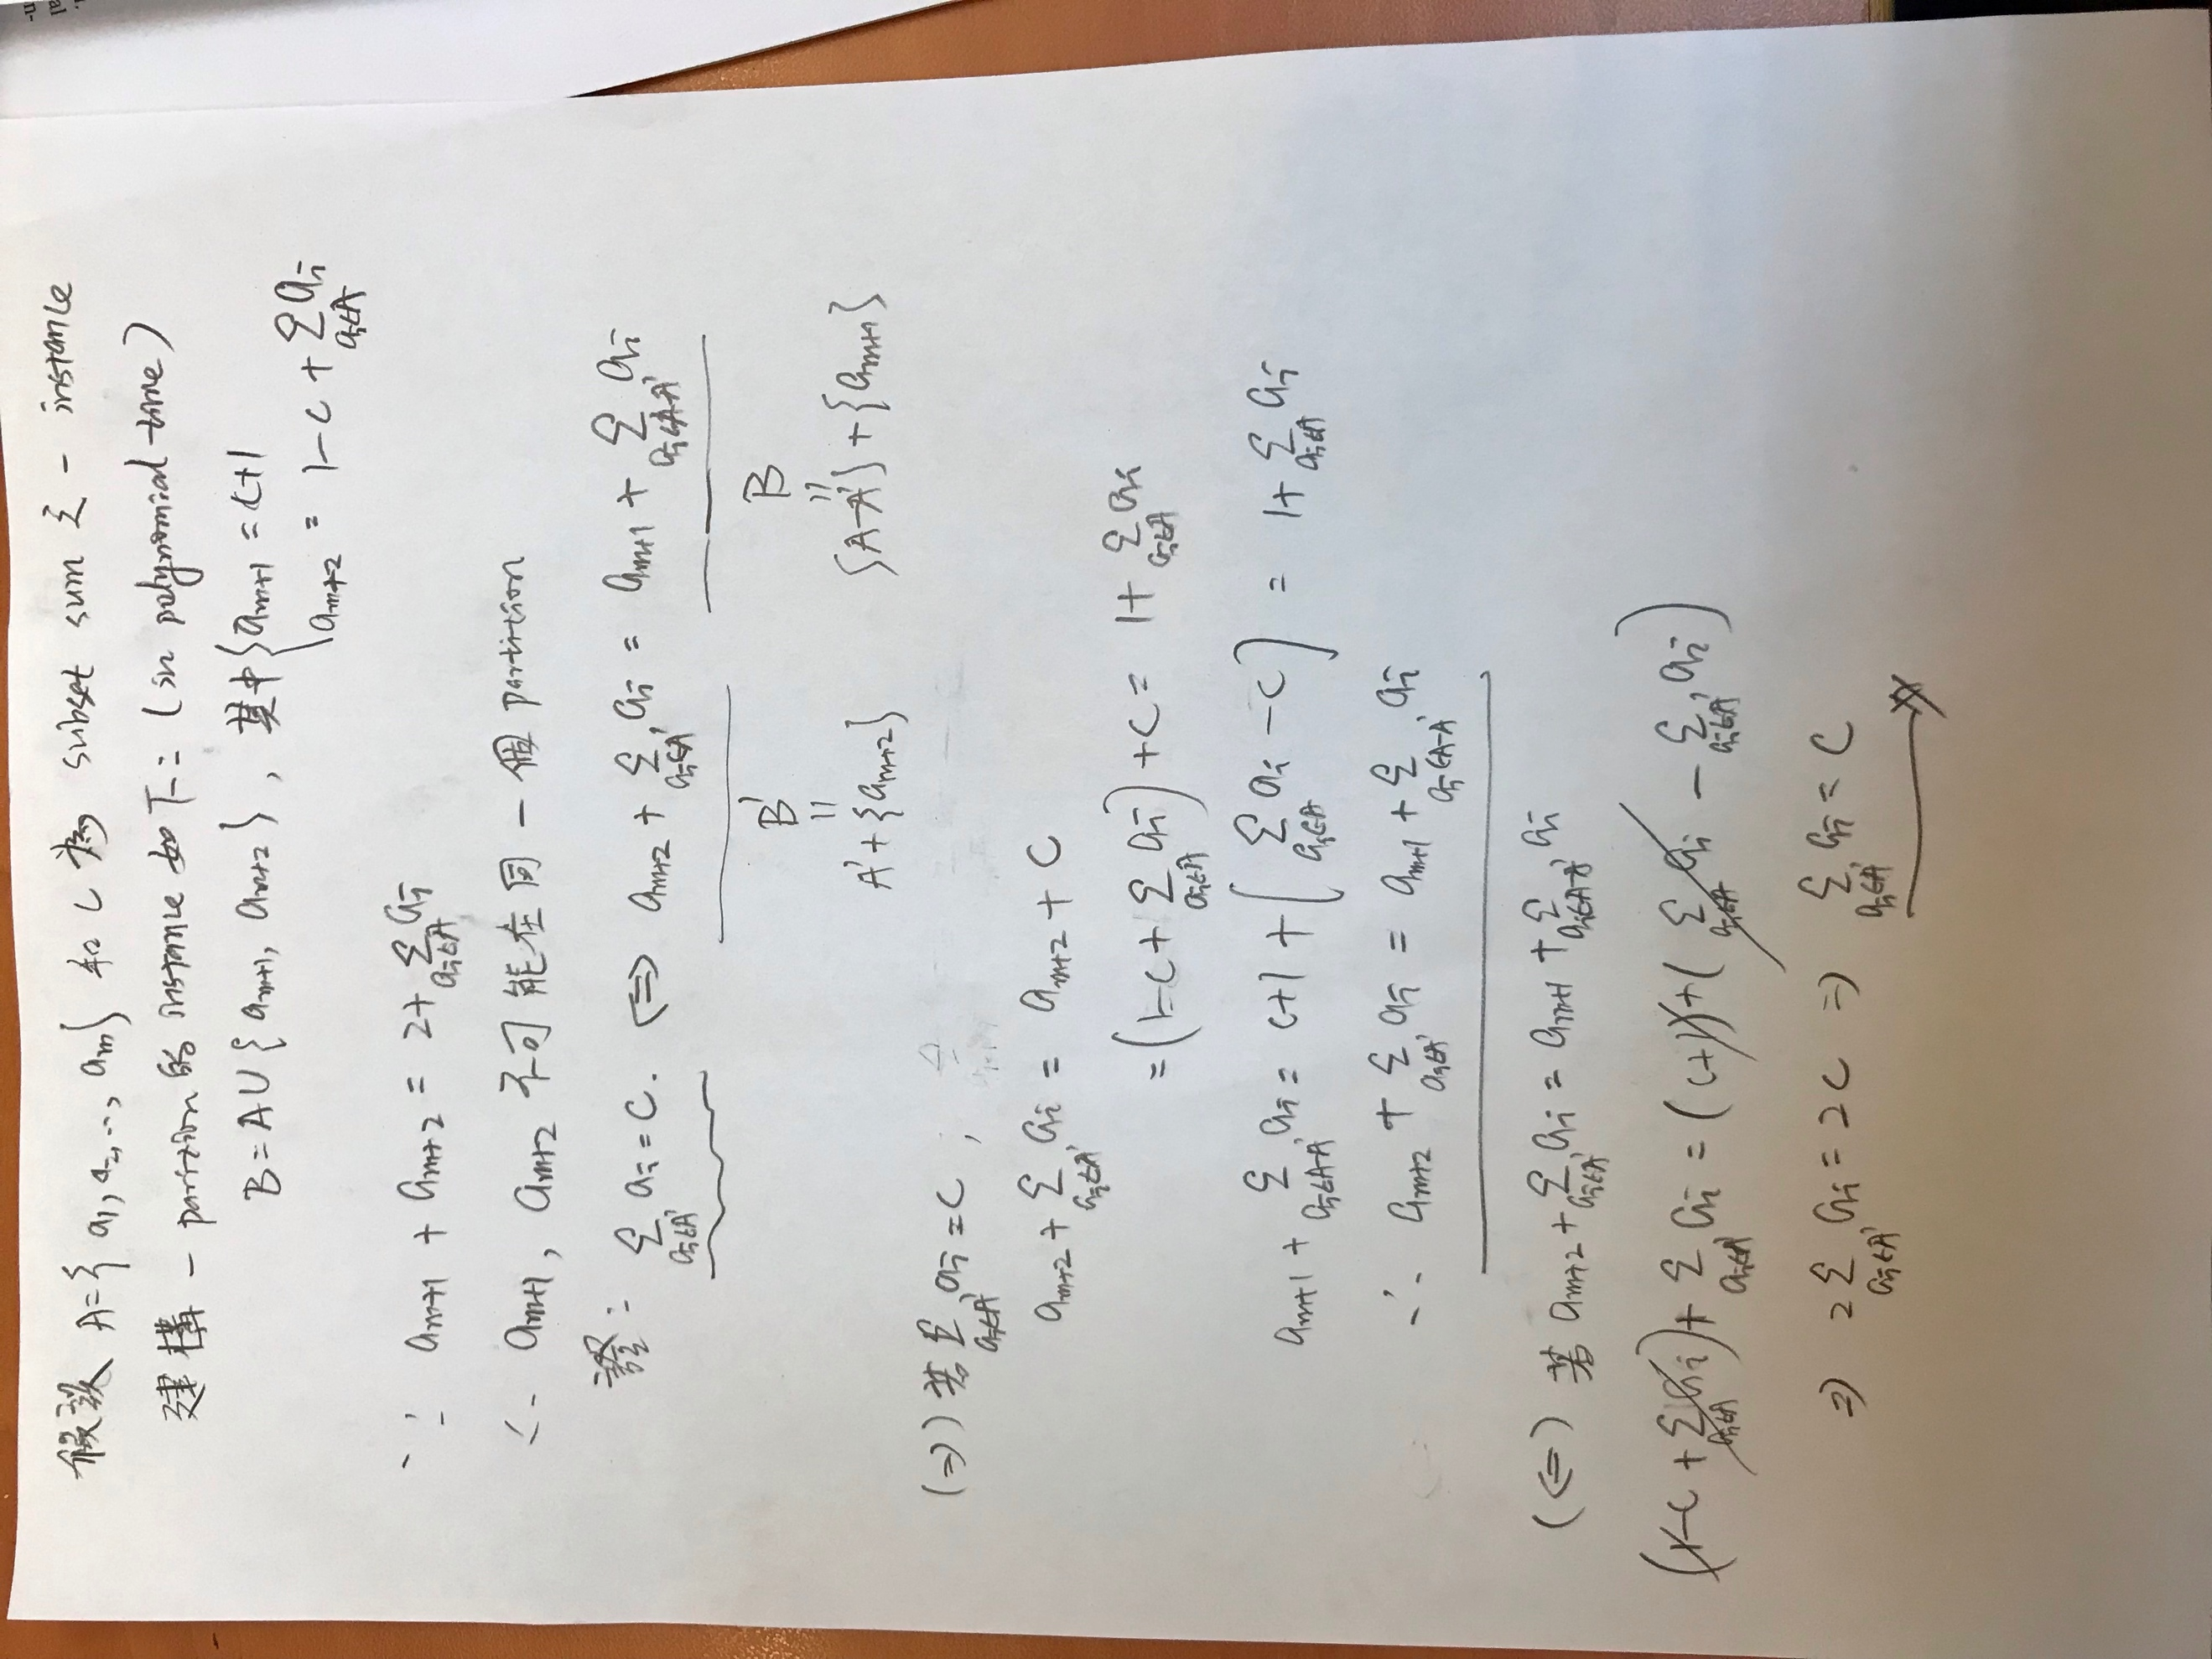 假設 A={a₁, a₂, ..., aₘ} 和 C 為 subset sum 之一 instance
建構一 partition 的 instance 如下: (in polynomial-time)
B = A∪{aₘ₊₁, aₘ₊₂}, 其中 { aₘ₊₁ = C+1
aₘ₊₂ = 1-C + Σ_{aᵢ∈A} aᵢ
∵ aₘ₊₁ + aₘ₊₂ = 2+ Σ_{aᵢ∈A} aᵢ
∴ aₘ₊₁, aₘ₊₂ 不可能在同一個 partition
證: Σ_{aᵢ∈A'} aᵢ = C. ⟺ aₘ₊₂ + Σ_{aᵢ∈A'} aᵢ = aₘ₊₁ + Σ_{aᵢ∈A-A'} aᵢ
B' B
= =
A'+{aₘ₊₂} {A-A'}+{aₘ₊₁}
(⇒) 若 Σ_{aᵢ∈A'} aᵢ = C,
aₘ₊₂ + Σ_{aᵢ∈A'} aᵢ = aₘ₊₂ + C
= (1-C+ Σ_{aᵢ∈A} aᵢ) + C = 1+ Σ_{aᵢ∈A} aᵢ
aₘ₊₁ + Σ_{aᵢ∈A-A'} aᵢ = C+1 + ( Σ_{aᵢ∈A} aᵢ - C) = 1+ Σ_{aᵢ∈A} aᵢ
∴ aₘ₊₂ + Σ_{aᵢ∈A'} aᵢ = aₘ₊₁ + Σ_{aᵢ∈A-A'} aᵢ
(⇐) 若 aₘ₊₂ + Σ_{aᵢ∈A'} aᵢ = aₘ₊₁ + Σ_{aᵢ∈A-A'} aᵢ
(1-C + Σ_{aᵢ∈A} aᵢ) + Σ_{aᵢ∈A'} aᵢ = (C+1) + ( Σ_{aᵢ∈A} aᵢ - Σ_{aᵢ∈A'} aᵢ)
⇒ 2 Σ_{aᵢ∈A'} aᵢ = 2C ⇒ Σ_{aᵢ∈A'} aᵢ = C